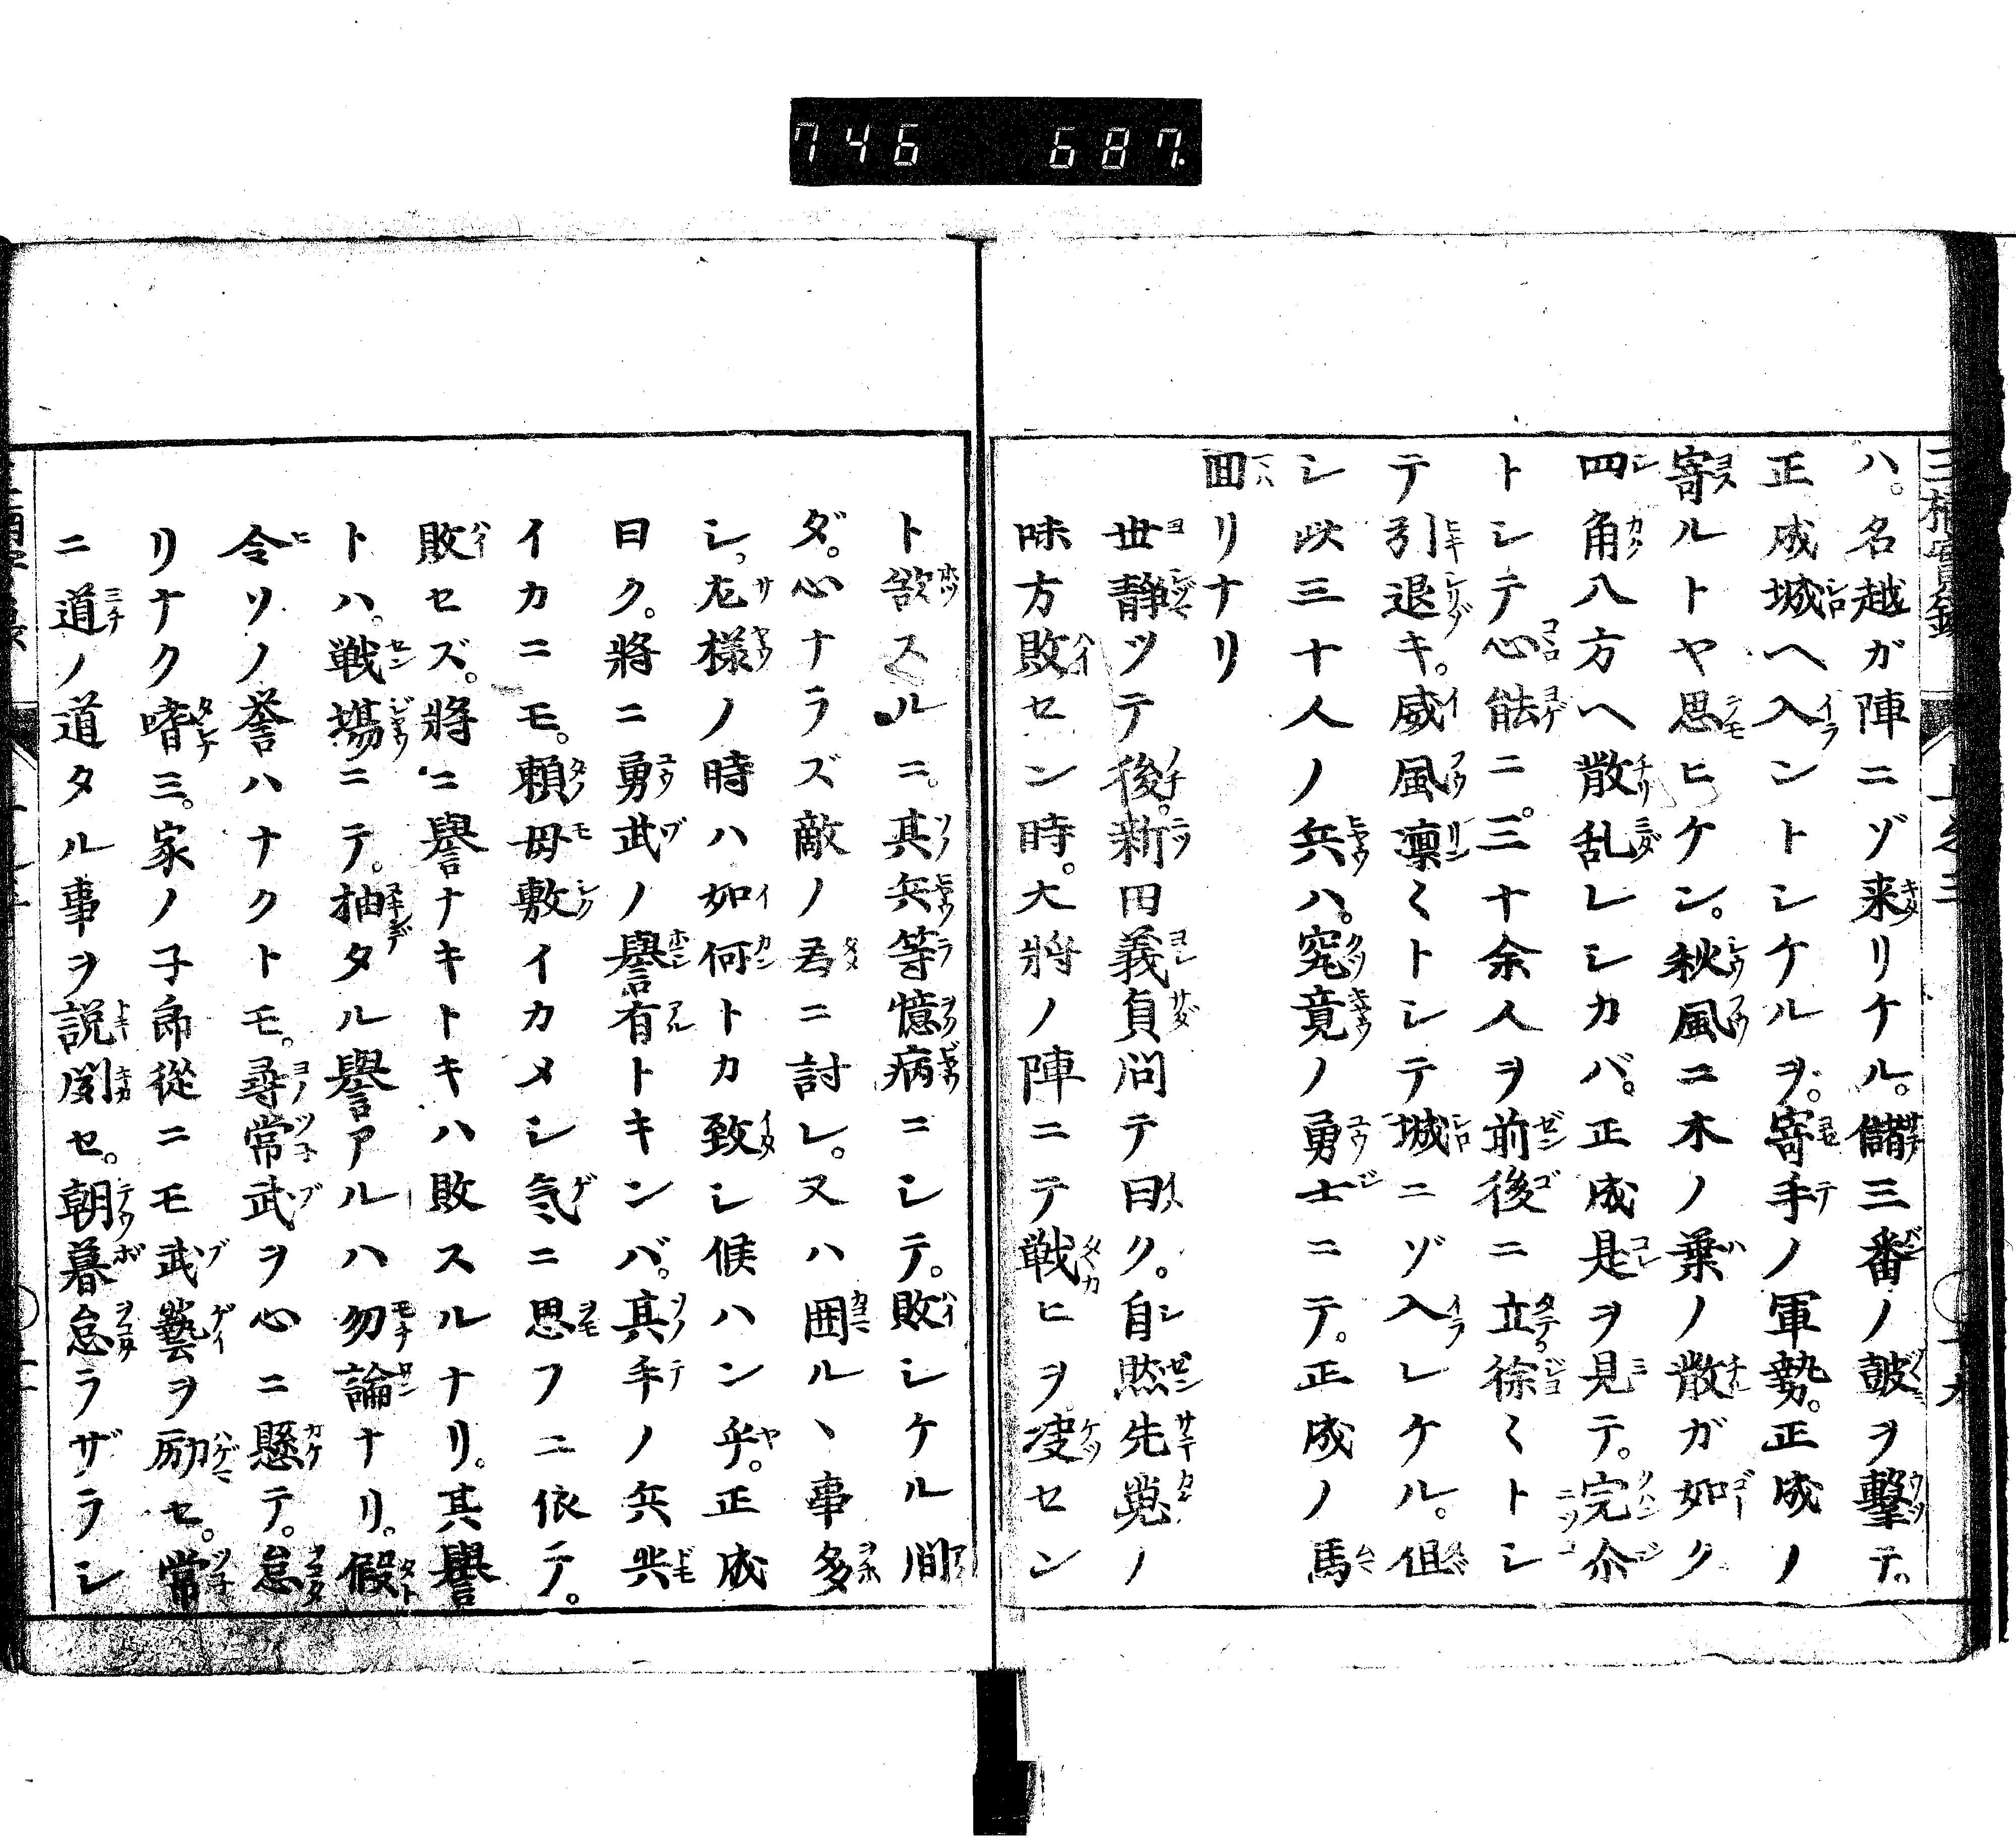 746 687.
三楠實録
ハ。名越ガ陣ニゾ来リケル。儲三番ノ皷ヲ撃テ。
正成城ヘ入ントシケルヲ。寄手ノ軍勢。正成ノ
寄ルトヤ思ヒケン。秋風ニ木ノ葉ノ散ガ如ク
四角八方ヘ散乱レシカバ。正成是ヲ見テ。完尒
トシテ心能ニ。三十余人ヲ前後ニ立徐〻トシ
テ引退キ。威風凛〻トシテ城ニゾ入レケル。但
シ此三十人ノ兵ハ。究竟ノ勇士ニテ。正成ノ馬
囬リナリ
世静ツテ後。新田義貞問テ曰ク。自然先懸ノ
味方敗セン時。大將ノ陣ニテ戦ヒヲ决セン
ト欲スルニ。其兵等憶病ニシテ。敗シケル間
ダ。心ナラズ敵ノ為ニ討レ。又ハ囲ル丶事多
シ。左様ノ時ハ如何トカ致シ候ハン乎。正成
曰ク。將ニ勇武ノ譽有トキンバ。其手ノ兵共
イカニモ。頼母敷イカメシ気ニ思フニ依テ。
敗セズ。將ニ譽ナキトキハ敗スルナリ。其譽
トハ。戦場ニテ。抽タル譽アルハ勿論ナリ。假
令ソノ誉ハナクトモ。尋常武ヲ心ニ懸テ。怠
リナク嗜ミ。家ノ子郎從ニモ武藝ヲ励セ。常
ニ道ノ道タル事ヲ説聞セ。朝暮怠ラザラシ